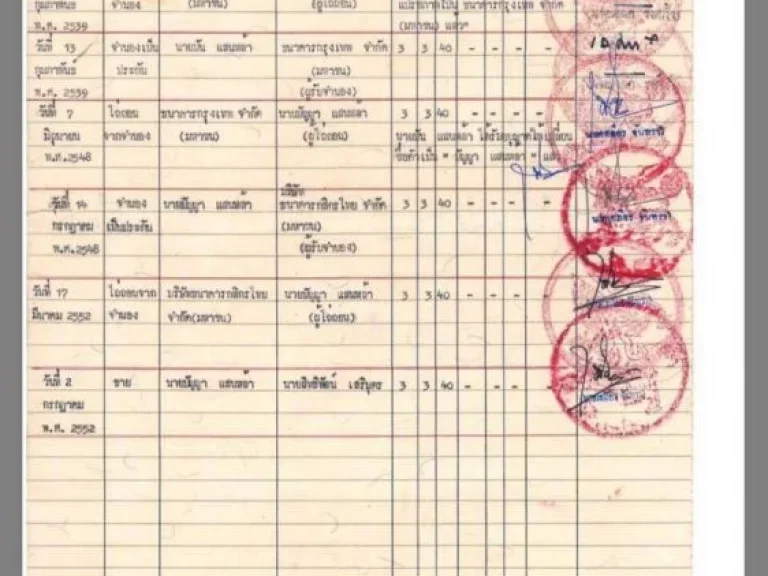 กุมภาพันธ์ จำนอง (มหาชน) (ผู้ไถ่ถอน) ธนาคารกรุงเทพ จำกัด
พ.ศ. 2539 (มหาชน) แล้ว"
วันที่ 13 จำนองเป็น นายปั่น แสนหล้า ธนาคารกรุงเทพ จำกัด 3 3 40 - - - -
กุมภาพันธ์ ประกัน (มหาชน)
พ.ศ. 2539 (ผู้รับจำนอง)
วันที่ 7 ไถ่ถอน ธนาคารกรุงเทพ จำกัด นายปัญญา แสนหล้า 3 3 40 - - - -
มิถุนายน จากจำนอง (มหาชน) (ผู้ไถ่ถอน) แสนหล้า ได้รับอนุญาตให้เปลี่ยน
พ.ศ.2548 ชื่อตัวเป็น " ปัญญา แสนหล้า " แล้ว
บริษัท
วันที่ 14 จำนอง นายปัญญา แสนหล้า ธนาคารกสิกรไทย จำกัด 3 3 40 - - - -
กรกฎาคม เป็นประกัน (มหาชน)
พ.ศ.2548 (ผู้รับจำนอง)
วันที่ 17 ไถ่ถอนจาก บริษัทธนาคารกสิกรไทย นายปัญญา แสนหล้า 3 3 40 - - - -
มีนาคม 2552 จำนอง จำกัด(มหาชน) (ผู้ไถ่ถอน)
วันที่ 2 ขาย นายปัญญา แสนหล้า นายสิทธิพัฒน์ เสริบุตร 3 3 40 - - - -
กรกฎาคม
พ.ศ. 2552